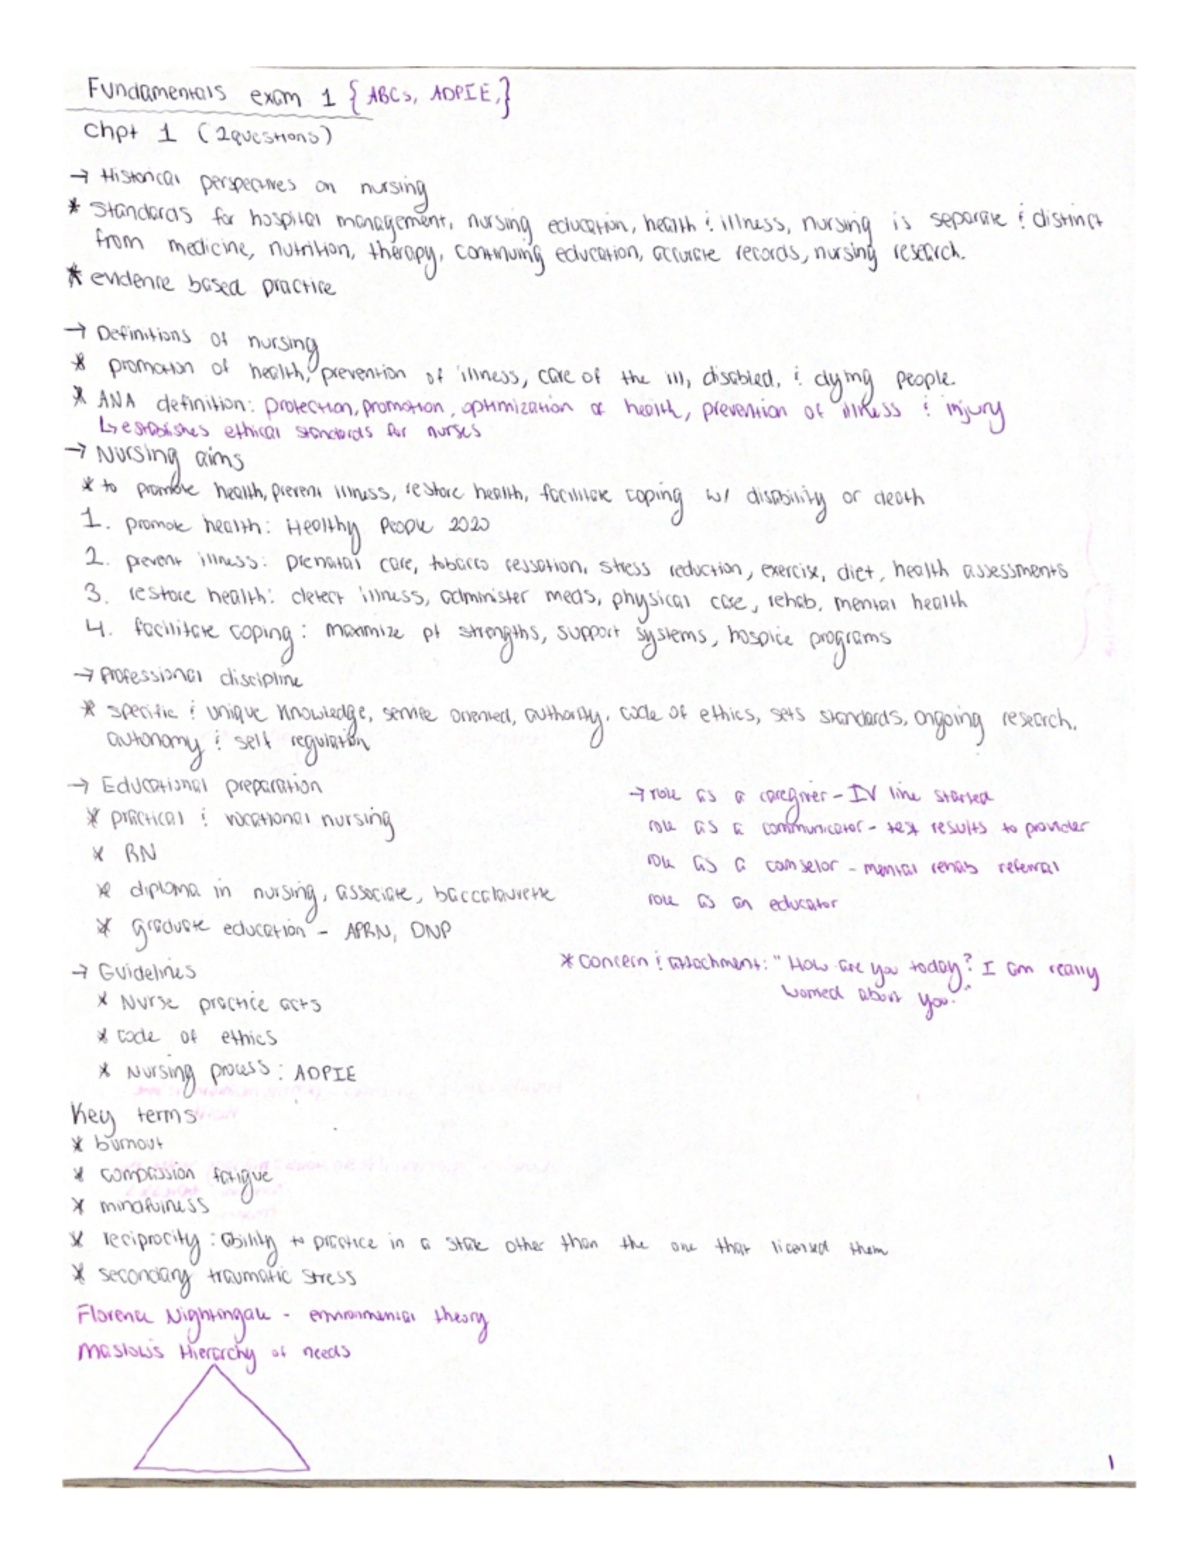 Fundamentals exam 1 {ABCs, ADPIE,}
Chpt 1 (2questions)
→ Historical perspectives on nursing
* Standards for hospital management, nursing education, health & illness, nursing is separate & distinct
from medicine, nutrition, therapy, continuing education, accurate records, nursing research.
* evidence based practice
→ Definitions of nursing
* promotion of health, prevention of illness, care of the ill, disabled, & dying people.
* ANA definition: protection, promotion, optimization of health, prevention of illness & injury
↳ establishes ethical standards for nurses
→ Nursing aims
* to promote health, prevent illness, restore health, facilitate coping w/ disability or death
1. promote health: Healthy People 2020
2. prevent illness: prenatal care, tobacco cessation, stress reduction, exercise, diet, health assessments
3. restore health: detect illness, administer meds, physical care, rehab, mental health
4. facilitate coping: maximize pt strengths, support systems, hospice programs
→ Professional discipline
* specific & unique knowledge, service oriented, authority, code of ethics, sets standards, ongoing research,
autonomy & self regulation
→ Educational preparation
* practical & vocational nursing
* RN
* diploma in nursing, associate, baccalaurette
* graduate education - APRN, DNP
→ role as a caregiver - IV line started
role as a communicator - test results to provider
role as a counselor - mental rehab referral
role as an educator
* concern & attachment: "How are you today? I am really
worried about you."
→ Guidelines
* Nurse practice acts
* code of ethics
* Nursing process: ADPIE
Key terms
* burnout
* compassion fatigue
* mindfulness
* reciprocity: ability to practice in a state other than the one that licensed them
* secondary traumatic stress
Florence Nightingale - environmental theory
Maslow's Hierarchy of needs
1